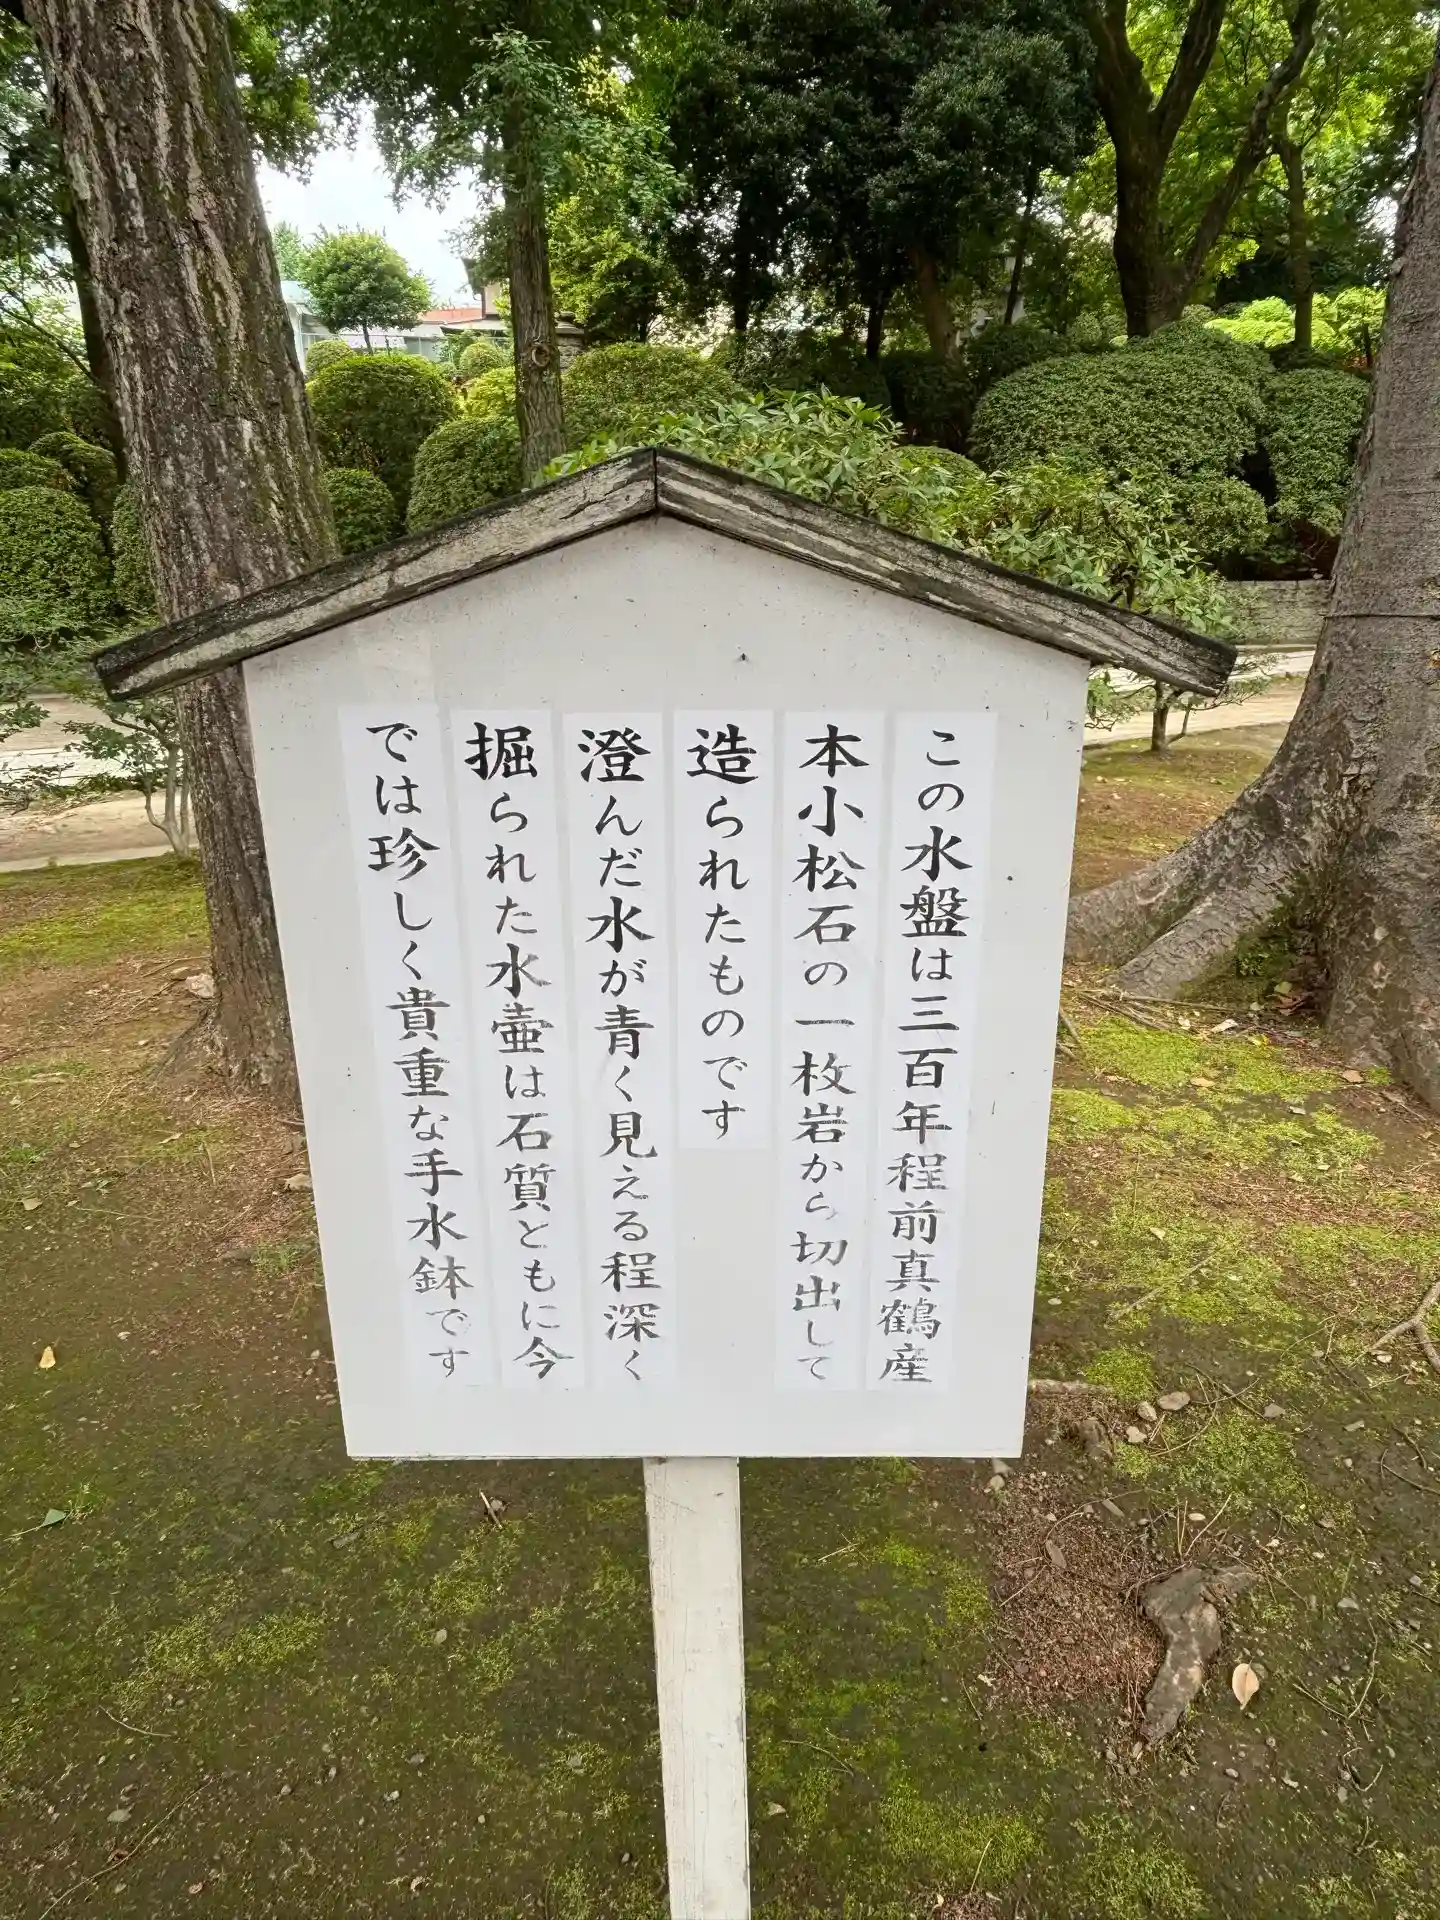 この水盤は三百年程前真鶴産
本小松石の一枚岩から切出して
造られたものです
澄んだ水が青く見える程深く
掘られた水壷は石質ともに今
では珍しく貴重な手水鉢です